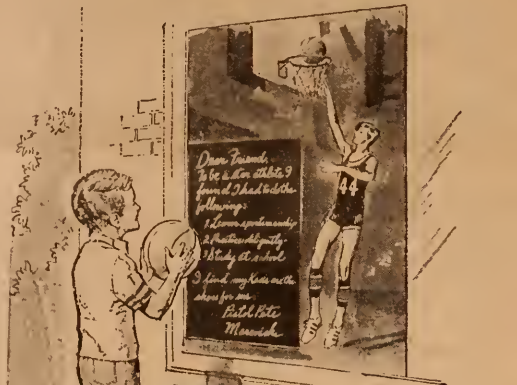 Dear Friend,
To be a star athlete I
found I had to do the
following:
1. Learn sportsmanship
2. Practice diligently
3. Study at school
I find my Keds are the
shoes for me.
Pistol Pete
Maravich
44